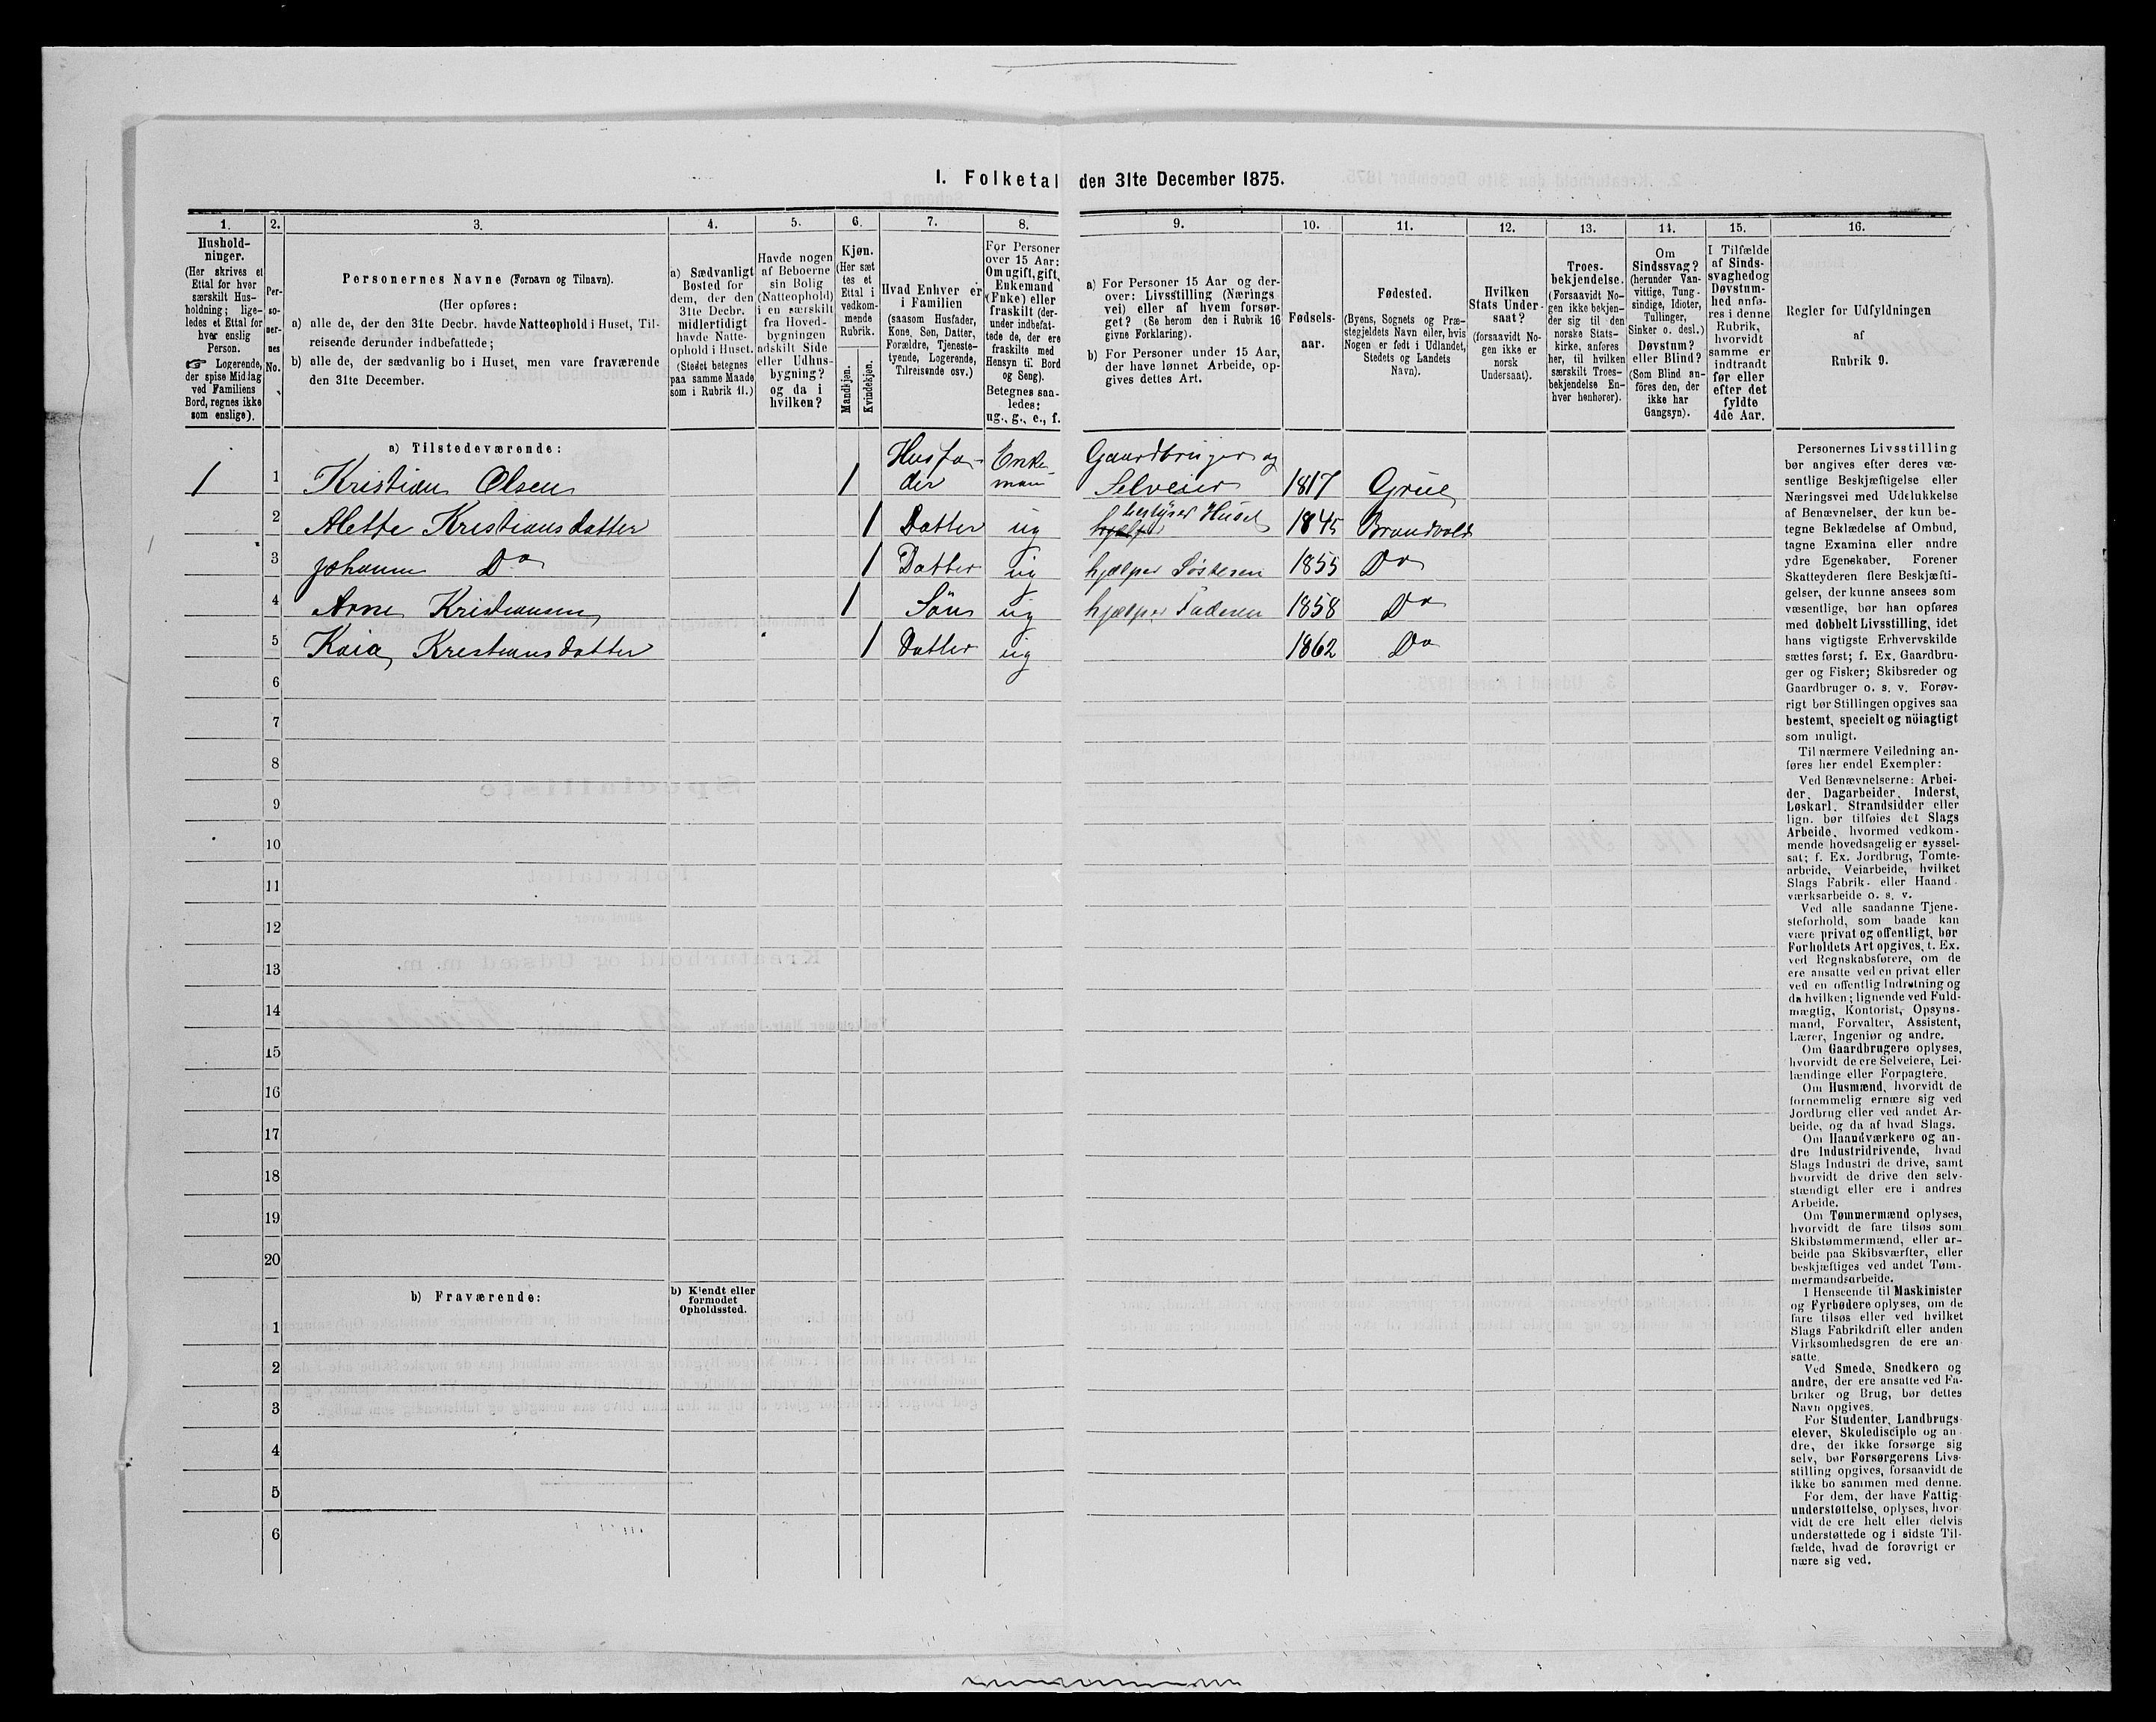 I. Folketal den 31te December 1875.
1. 2. 3. 4. 5. 6. 7. 8. 9. 10. 11. 12. 13. 14. 15. 16.
Hushold-
ninger.
(Her skrives et
Ettal for hver
særskilt Hus-
holdning; lige-
ledes et Ettal for
hver enslig
Person.
☞ Logerende,
der spise Middag
ved Familiens
Bord, regnes ikke
som enslige).
Per-
so-
ner-
nes
No.
Personernes Navne (Fornavn og Tilnavn).
(Her opføres:
a) alle de, der den 31te Decbr. havde Natteophold i Huset, Til-
reisende derunder indbefattede;
b) alle de, der sædvanlig bo i Huset, men vare fraværende
den 31te December.
a) Sædvanligt
Bosted for
dem, der den
31te Decbr.
midlertidigt
havde Natte-
ophold i Huset.
(Stedet betegnes
paa samme Maade
som i Rubrik 11.)
Havde nogen
af Beboerne
sin Bolig
(Natteophold)
i en særskilt
fra Hoved-
bygningen
adskilt Side
eller Udhus-
bygning?
og da i
hvilken?
Kjøn.
(Her sæt
tes et
Ettal i
vedkom-
mende
Rubrik.
Mandkjøn.
Kvindekjøn.
Hvad Enhver er
i Familien
(saasom Husfader,
Kone, Søn, Datter,
Forældre, Tjeneste-
tyende, Logerende,
Tilreisende osv.)
For Personer
over 15 Aar:
Om ugift, gift,
Enkemand
(Enke) eller
fraskilt (der-
under indbefat-
tede de, der ere
fraskilte med
Hensyn til Bord
og Seng).
Betegnes saa-
ledes:
ug., g., e., f.
a) For Personer 15 Aar og der-
over: Livsstilling (Nærings
vei) eller af hvem forsør-
get? (Se herom den i Rubrik 16
givne Forklaring).
b) For Personer under 15 Aar,
der have lønnet Arbeide, op-
gives dettes Art.
Fødsels-
aar.
Fødested.
(Byens, Sognets og Præ-
stegjeldets Navn eller, hvis
Nogen er født i Udlandet,
Stedets og Landets
Navn).
Hvilken
Stats Under-
saat?
(forsaavidt No-
gen ikke er
norsk
Undersaat).
Troes-
bekjendelse.
(Forsaavidt No-
gen ikke bekjen-
der sig til den
norske Stats-
kirke, anføres
her, til hvilken
særskilt Troes-
bekjendelse En-
hver henhører).
Om
Sindssvag?
(herunder Van-
vittige, Tung-
sindige, Idioter,
Tullinger,
Sinker o. desl.)
Døvstum?
eller Blind?
(Som Blind an-
føres den, der
ikke har
Gangsyn).
I Tilfælde
af Sinds-
svaghed og
Døvstum-
hed anfø-
res i denne
Rubrik,
hvorvidt
samme er
indtraadt
før eller
efter det
fyldte
4de Aar.
Regler for Udfyldningen
af
Rubrik 9.
a) Tilstedeværende:
1 1 Kristian Olsen 1 Husfa-
der Enke-
man Gaardbruger og
Selveier 1817 Grue
2 Alette Kristiansdatter 1 Datter ug bestyrer Huset 1845 Brandvold
3 Johanne Do 1 Datter ug hjælper Søsteren 1855 Do
4 Arne Kristiansen 1 Søn ug hjælper Faderen 1858 Do
5 Kaia Kristiansdatter 1 Datter ug 1862 Do
6
7
8
9
10
11
12
13
14
15
16
17
18
19
20
b) Fraværende:
b) Kjendt eller
formodet
Opholdssted.
1
2
3
4
5
6
Personernes Livsstilling
bør angives efter deres væ-
sentlige Beskjæftigelse eller
Næringsvei med Udelukkelse
af Benævnelser, der kun be-
tegne Beklædelse af Ombud,
tagne Examina eller andre
ydre Egenskaber. Forener
Skatteyderen flere Beskjæfti-
gelser, der kunne ansees som
væsentlige, bør han opføres
med dobbelt Livsstilling, idet
hans vigtigste Erhvervskilde
sættes først; f. Ex. Gaardbru-
ger og Fisker; Skibsreder og
Gaardbruger o. s. v. Forøv-
rigt bør Stillingen opgives saa
bestemt, specielt og nöiagtigt
som muligt.
Til nærmere Veiledning an-
føres her endel Exempler:
Ved Benævnelserne: Arbei-
der, Dagarbeider, Inderst,
Løskarl, Strandsidder eller
lign. bør tilføies det Slags
Arbeide, hvormed vedkom-
mende hovedsagelig er syssel-
sat; f. Ex. Jordbrug, Tomte-
arbeide, Veiarbeide, hvilket
Slags Fabrik- eller Haand-
værksarbeide o. s. v.
Ved alle saadanne Tjene-
steforhold, som baade kan
være privat og offentligt, bør
Forholdets Art opgives, t. Ex.
ved Regnskabsførere, om de
ere ansatte ved en privat eller
ved en offentlig Indretning og
da hvilken; lignende ved Fuld-
mægtig, Kontorist, Opsyns-
mand, Forvalter, Assistent,
Lærer, Ingeniør og andre.
Om Gaardbrugere oplyses,
hvorvidt de ere Selveiere, Lei-
lændinge eller Forpagtere.
Om Husmænd, hvorvidt de
fornemmelig ernære sig ved
Jordbrug eller ved andet Ar-
beide, og da af hvad Slags.
Om Haandværkere og an-
dre Industridrivende, hvad
Slags Industri de drive, samt
hvorvidt de drive den selv-
stændigt eller ere i andres
Arbeide.
Om Tømmermænd oplyses,
hvorvidt de fare tilsøs som
Skibstømmermænd, eller ar-
beide paa Skibsværfter, eller
beskjæftiges ved andet Tøm-
mermandsarbeide.
I Henseende til Maskinister
og Fyrbødere oplyses, om de
fare tilsøs eller ved hvilket
Slags Fabrikdrift eller anden
Virksomhedsgren de ere an-
satte.
Ved Smede, Snedkere og
andre, der ere ansatte ved Fa-
briker og Brug, bør dettes
Navn opgives.
For Studenter, Landbrugs-
elever, Skoledisciple og an-
dre, der ikke forsørge sig
selv, bør Forsørgerens Livs-
stilling opgives, forsaavidt de
ikke bo sammen med denne.
For dem, der have Fattig-
understøttelse, oplyses, hvor-
vidt de ere helt eller delvis
understøttede og i sidste Til-
fælde, hvad de forøvrigt er
nære sig ved.